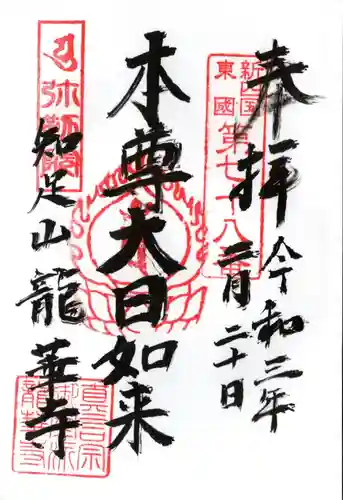 奉拝
令和三年
二月二十日
新四国
東國
第七十八番
本尊大日如来
弥勒
知足山龍華寺
真言宗
御室派
龍華寺